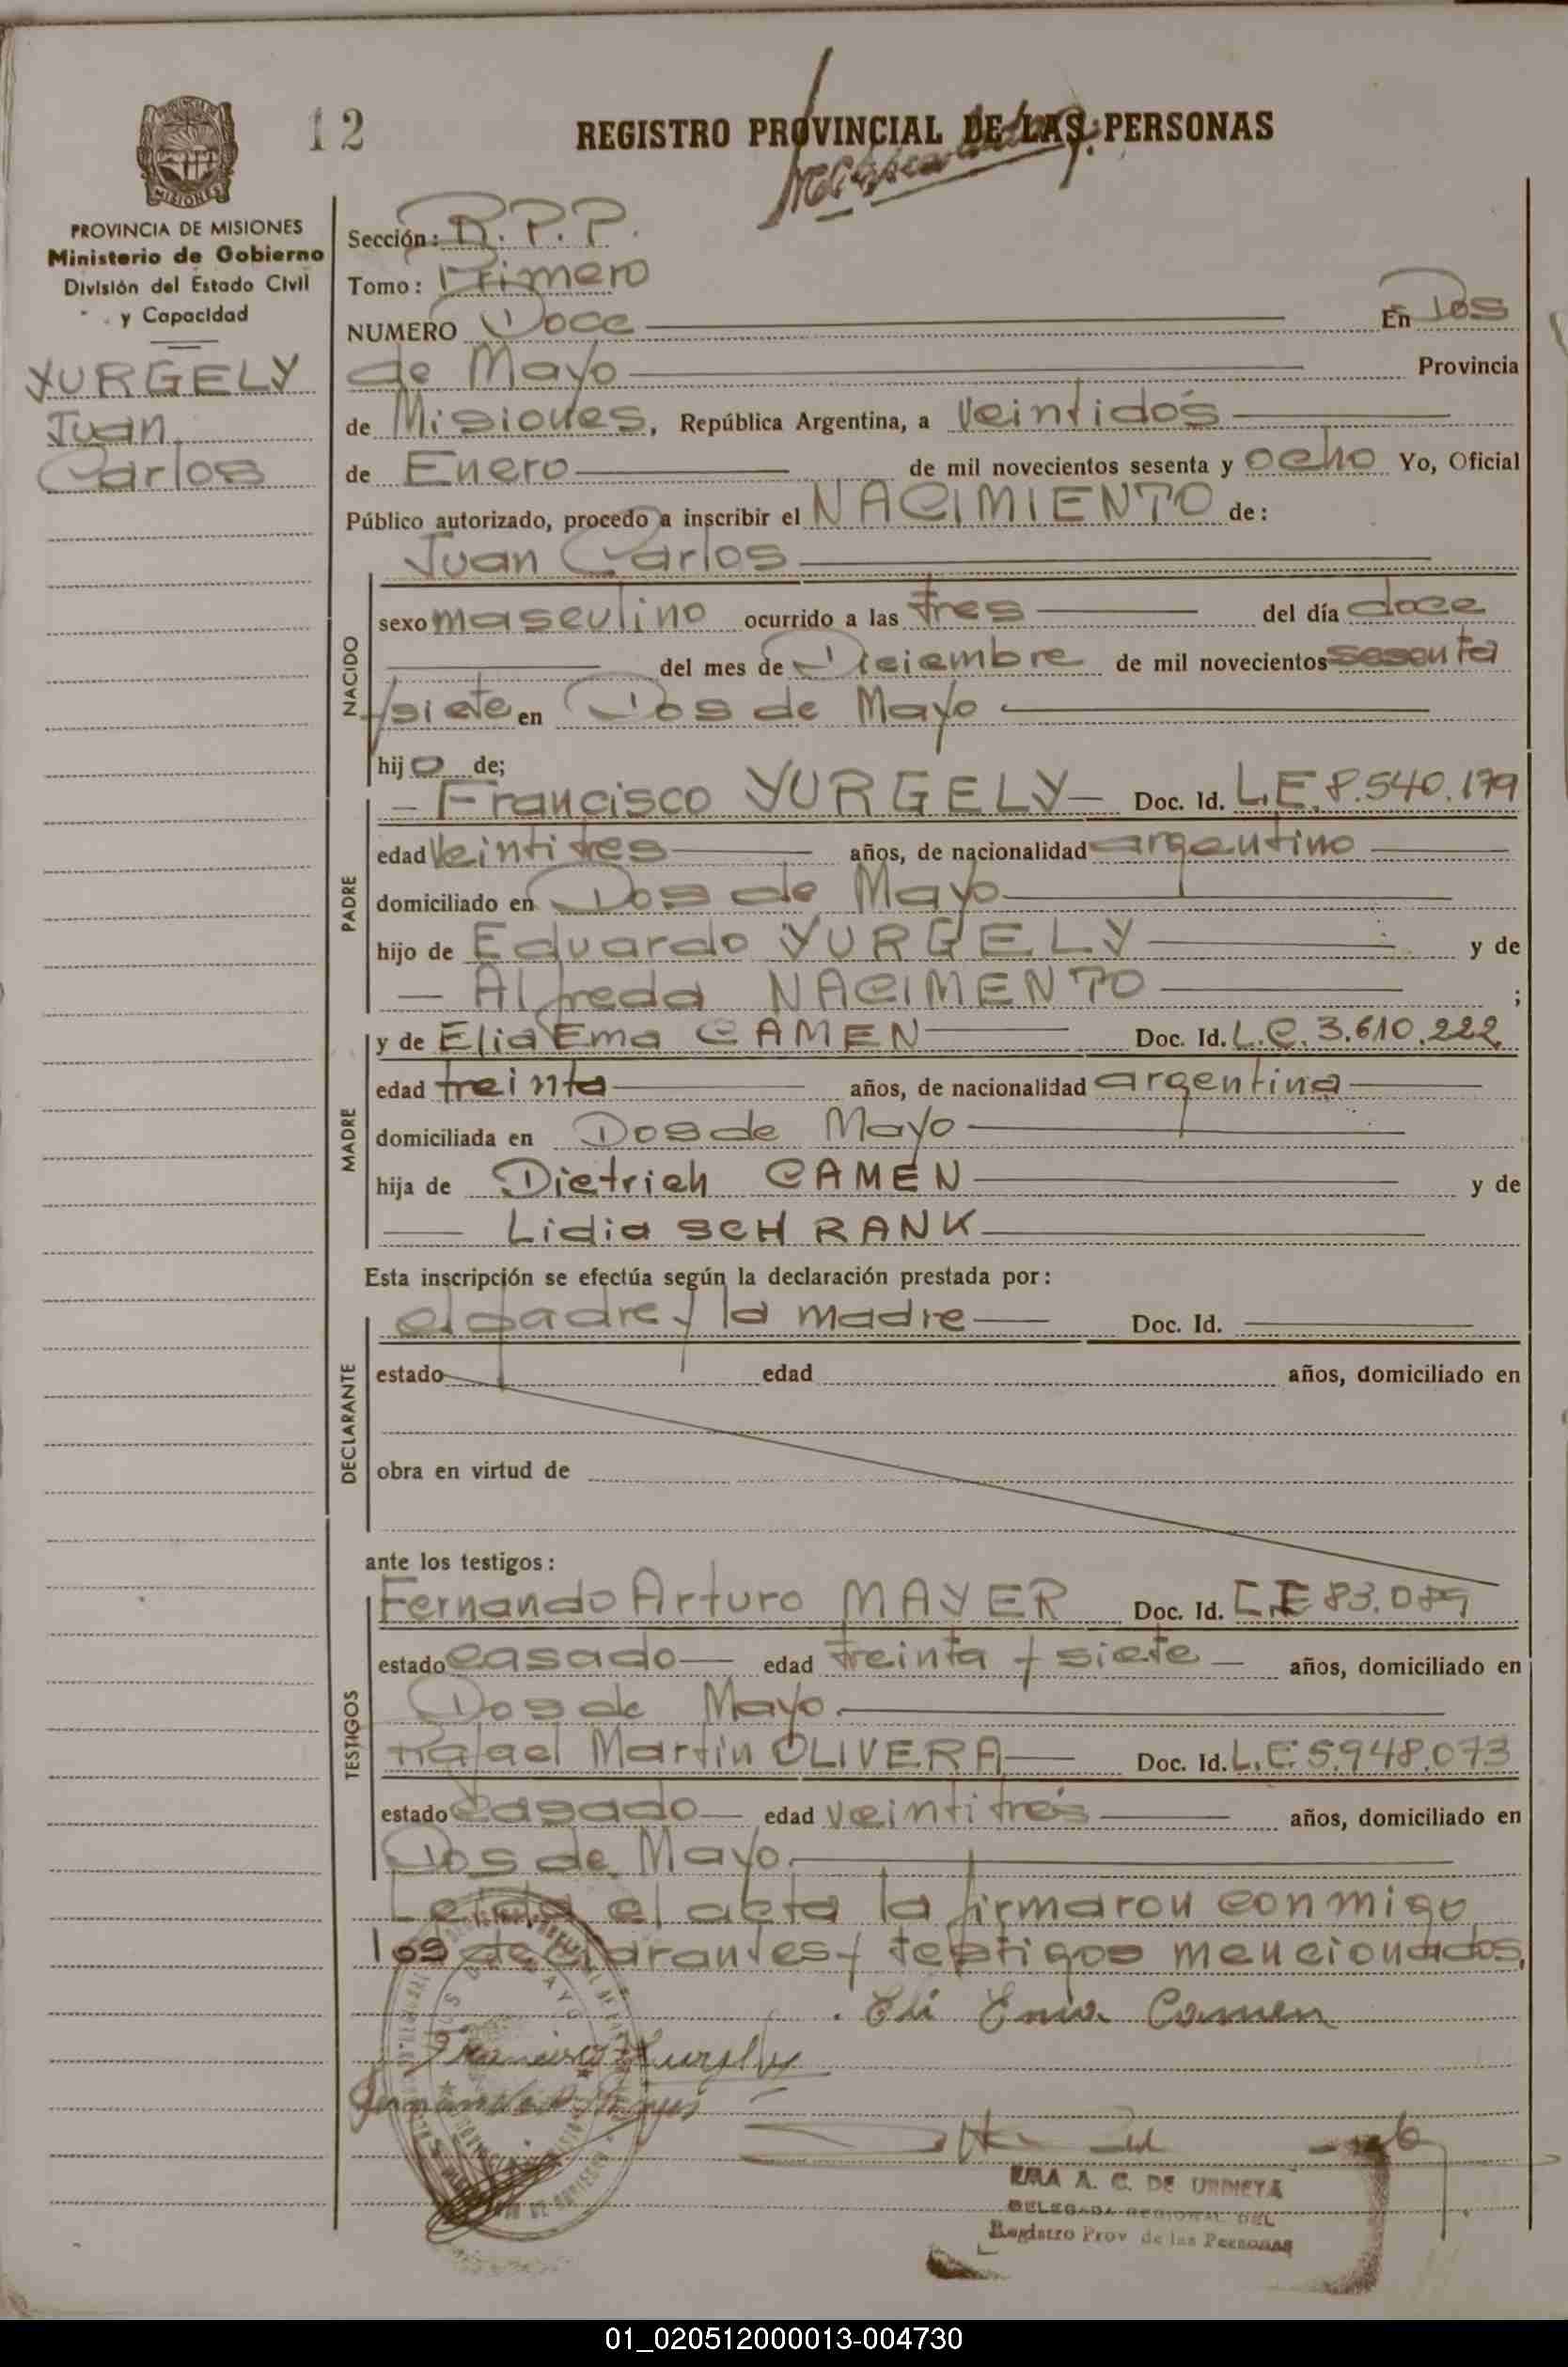 12
REGISTRO PROVINCIAL DE LAS PERSONAS
PROVINCIA DE MISIONES
Ministerio de Gobierno
División del Estado Civil
y Capacidad
YURGELY
Juan
Carlos
Sección: R.P.P.
Tomo: Primero
NUMERO Doce En Dos
de Mayo Provincia
de Misiones, República Argentina, a veintidós
de Enero de mil novecientos sesenta y ocho Yo, Oficial
Público autorizado, procedo a inscribir el NACIMIENTO de:
Juan Carlos
NACIDO
sexo masculino ocurrido a las tres del día doce
del mes de Diciembre de mil novecientos sesenta
y siete en Dos de Mayo
hijo de;
PADRE
Francisco YURGELY Doc. Id. L.E. 8.540.179
edad veintitres años, de nacionalidad argentino
domiciliado en Dos de Mayo
hijo de Eduardo YURGELY y de
Alfreda NACIMENTO ;
MADRE
y de Elia Ema CAMEN Doc. Id. L.C. 3.610.222
edad treinta años, de nacionalidad argentina
domiciliada en Dos de Mayo
hija de Dietrich CAMEN y de
Lidia SCHRANK
Esta inscripción se efectúa según la declaración prestada por:
DECLARANTE
el padre y la madre Doc. Id.
estado edad años, domiciliado en
obra en virtud de
ante los testigos:
TESTIGOS
Fernando Arturo MAYER Doc. Id. L.E 83.089
estado casado edad treinta y siete años, domiciliado en
Dos de Mayo
Rafael Martín OLIVERA Doc. Id. L.E. 5.948.073
estado casado edad veintitrés años, domiciliado en
Dos de Mayo
Leida el acta la firmaron conmigo
los declarantes y testigos mencionados.
Eli Ema Camen
Francisco Yurgely
A. C. DE URRIETA
DELEGADA REGIONAL DEL
Registro Prov. de las Personas
01_020512000013-004730